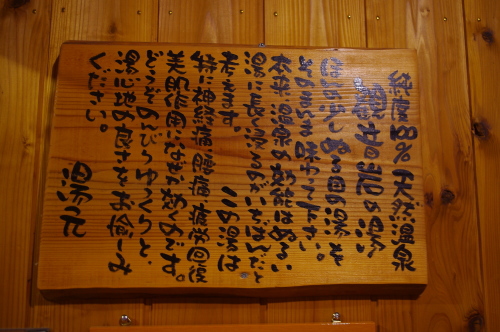 純度100％天然温泉
の湯
の湯を
そのまま味わって下さい。
本来、温泉の効能はぬるい
湯に長く浸るのがいちばんだと
考えます。 この湯は
特に神経痛腰痛、病後回復
美肌作用になお効くのです。
どうぞのんびりゆっくりと、
湯心地の良さをお愉しみ
ください。
湯元